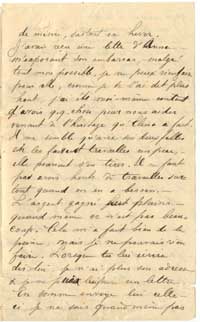 de même, surtout sa
J'avais reçu une lettre d'Anna
m'exposant son embarras, malgré
tout mon possible, je ne peux rien faire
pour elle, comme je te l'ai dit plus
haut, j'ai été moi-même content
d'avoir q.q. chose pour nous aider
venant à l'héritage qu'
Il me semble qu'avec ses deux filles
si les travailler un peu,
elle pourrait s'en tirer. Il ne faut
pas avoir honte de travailler sur
tout quand on en a besoin.
L'argent gagné fait plaisir
quand même ce n'est pas beau
coup. Cela m'a fait bien de la
peine, mais je ne pouvais rien
faire. Lorsque tu lui écriras
dis-lui je n'ai plus son adresse
je ne peux sa lettre.
en somme envoye lui celle
ci je ne sais quand même pas